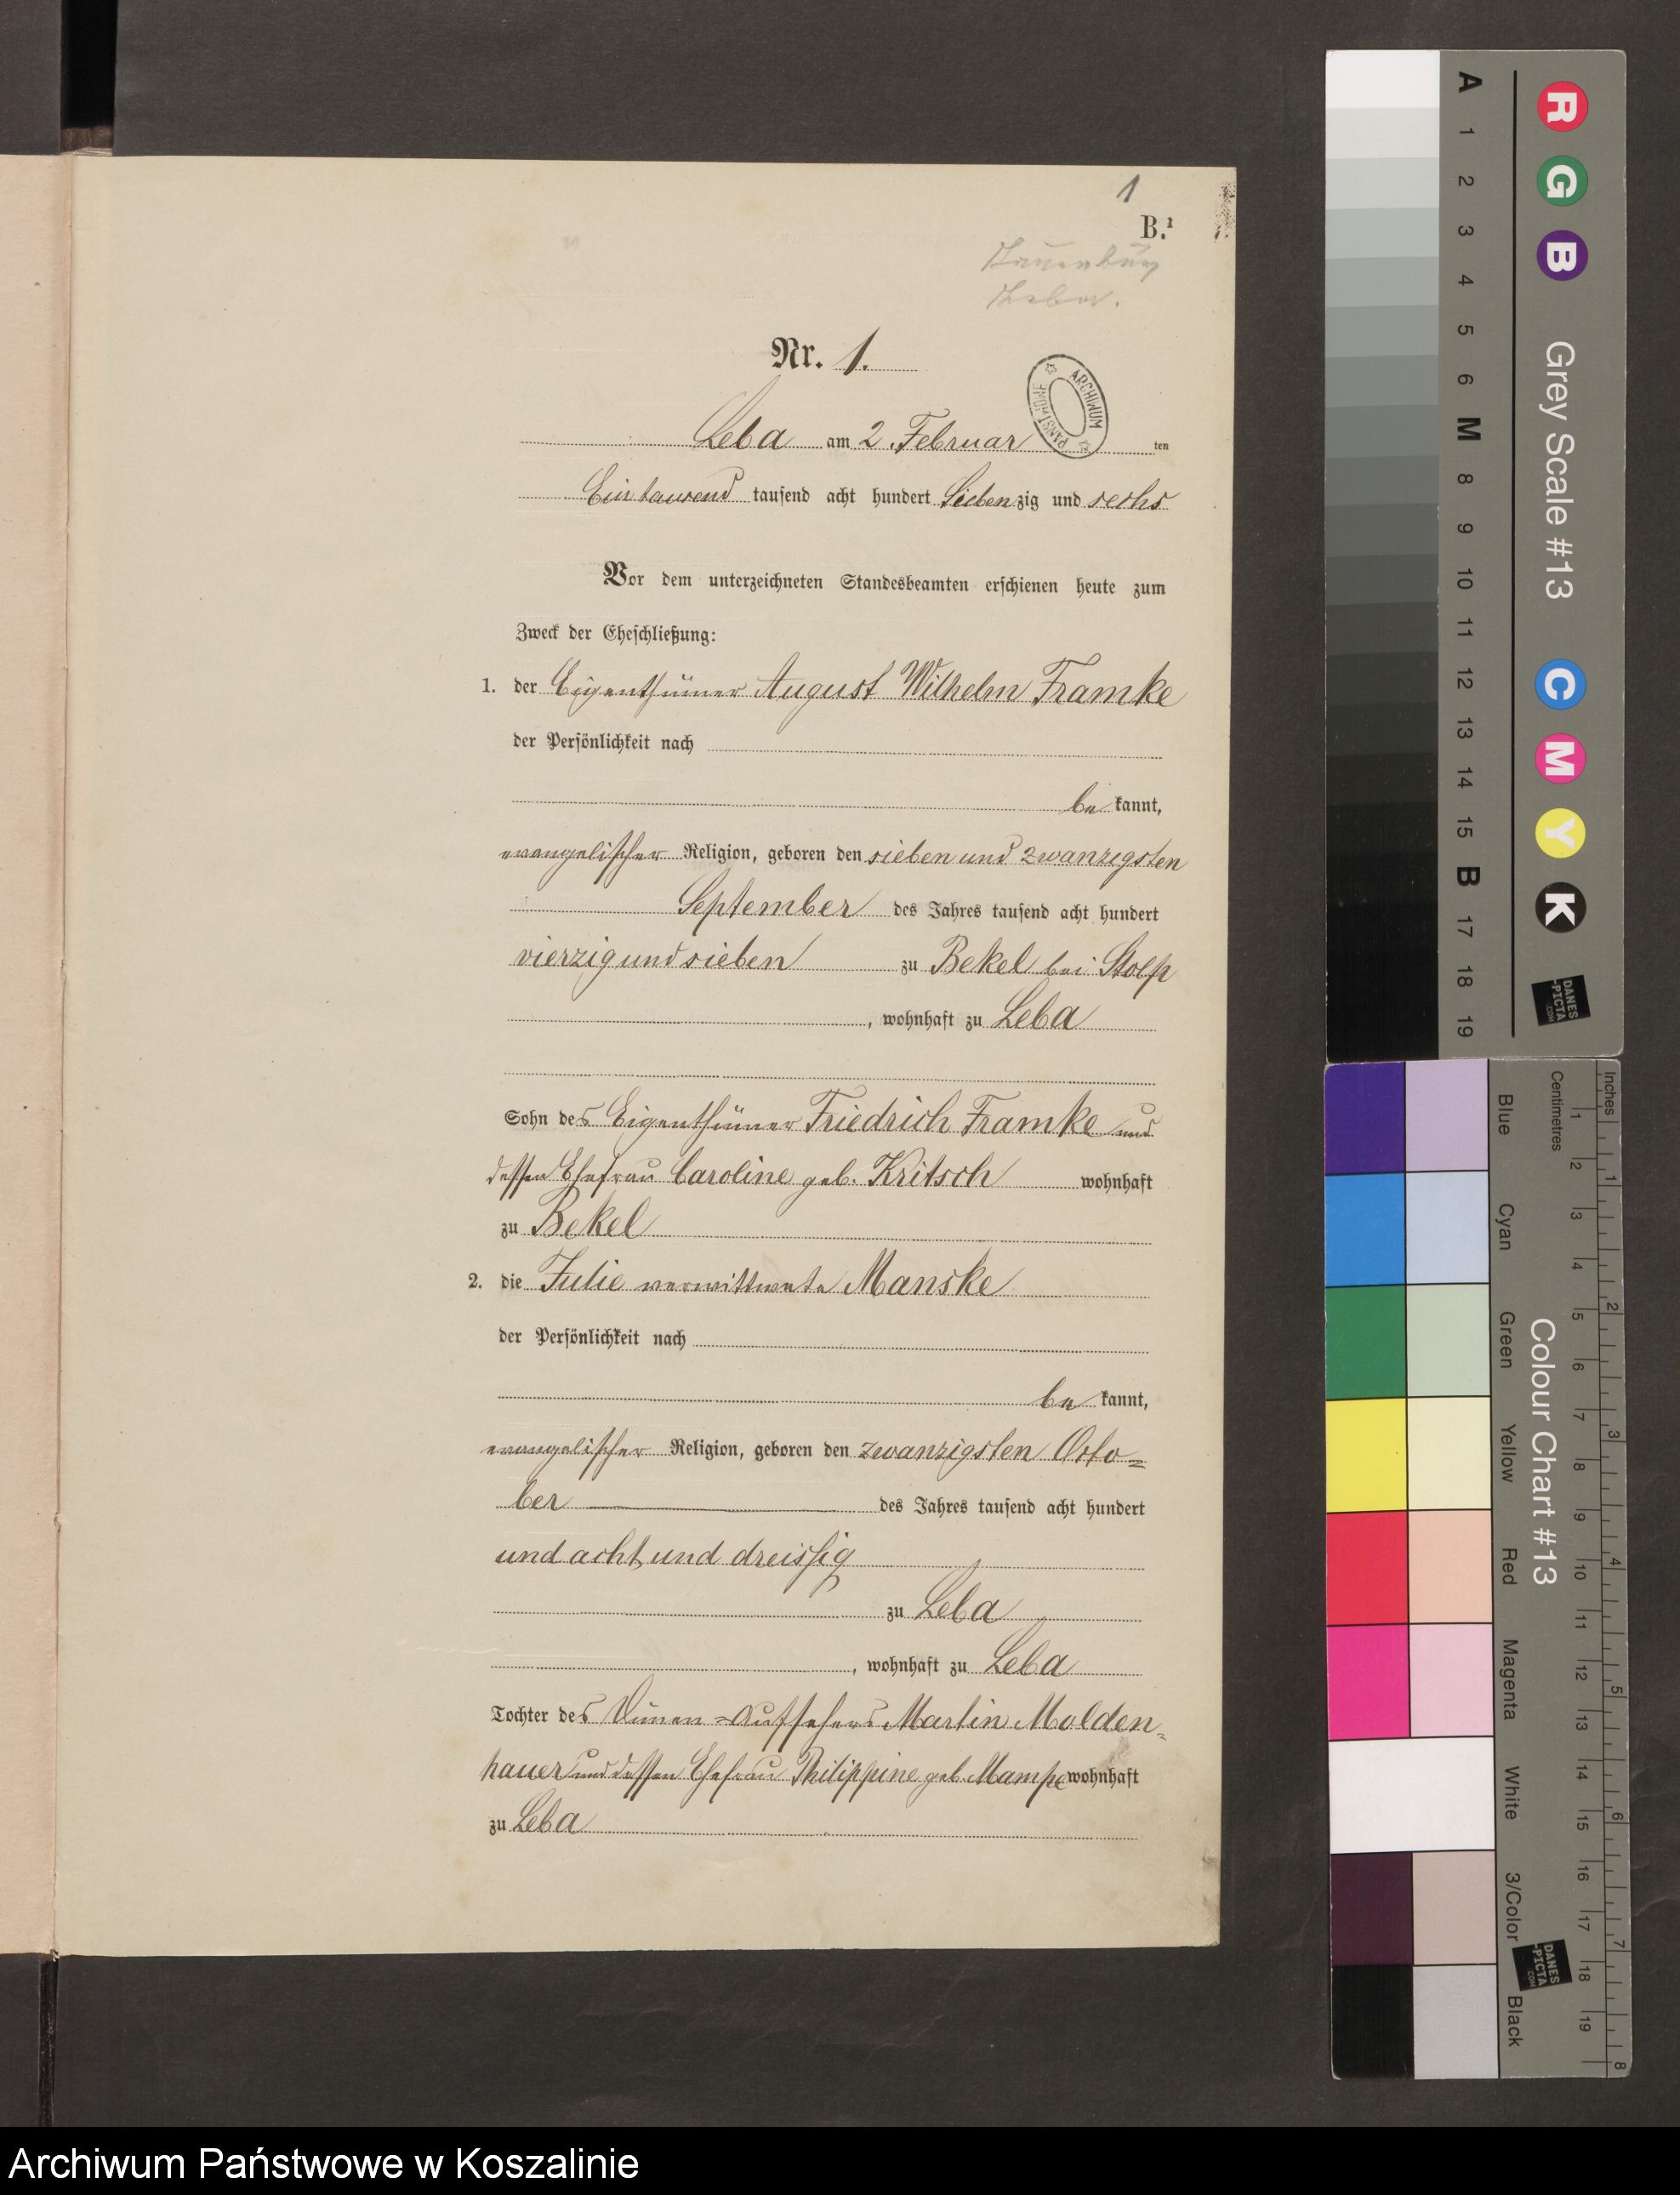 1
B.¹
Lauenburg
Leba.
Nr. 1.
ARCHIWUM PAŃSTWOWE
Leba am 2. Februar ten
Ein tausend tausend acht hundert Siebenzig und sechs
Vor dem unterzeichneten Standesbeamten erschienen heute zum
Zweck der Eheschließung:
1. der Eigenthümer August Wilhelm Framke
der Persönlichkeit nach
be kannt,
evangelischer Religion, geboren den sieben und zwanzigsten
September des Jahres tausend acht hundert
vierzig und sieben zu Bekel bei Stolp
, wohnhaft zu Leba
Sohn des Eigenthümer Friedrich Framke und
dessen Ehefrau Caroline geb. Kritsch wohnhaft
zu Bekel
2. die Julie verwittwete Manske
der Persönlichkeit nach
be kannt,
evangelischer Religion, geboren den zwanzigsten Octo=
ber des Jahres tausend acht hundert
und acht und dreissig
zu Leba
, wohnhaft zu Leba
Tochter des Dünen=Aufsehers Martin Molden=
hauer und dessen Ehefrau Philippine geb. Mampe wohnhaft
zu Leba
A 1 2 3 4 5 6 M 8 9 10 11 12 13 14 15 B 17 18 19
R G B Grey Scale #13 C M Y K
DANES-PICTA.COM
Blue Cyan Green Yellow Red Magenta White 3/Color Black
Colour Chart #13
DANES-PICTA.COM
Centimetres 1 2 3 4 5 6 7 8 9 10 11 12 13 14 15 16 17 18 19
Inches 1 2 3 4 5 6 7 8
Archiwum Państwowe w Koszalinie